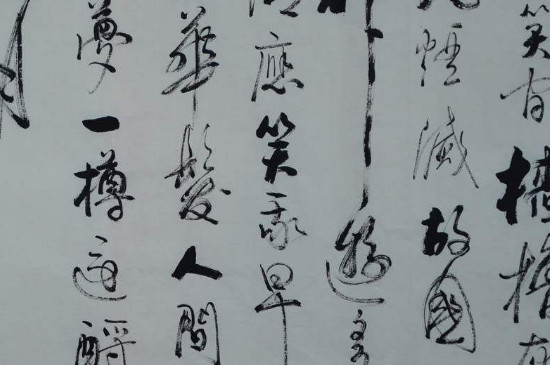 笑間檣櫓
煙滅故國
神遊多
應笑我早
華髮人間
夢一樽還酹
月